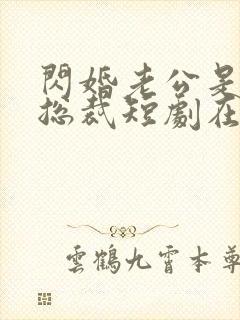 閃婚老公是
總裁短劇在
雲鶴九霄本尊